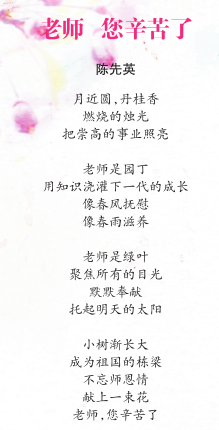 老师 您辛苦了
陈先英
月近圆,丹桂香
燃烧的烛光
把崇高的事业照亮
老师是园丁
用知识浇灌下一代的成长
像春风抚慰
像春雨滋养
老师是绿叶
聚焦所有的目光
默默奉献
托起明天的太阳
小树渐长大
成为祖国的栋梁
不忘师恩情
献上一束花
老师,您辛苦了